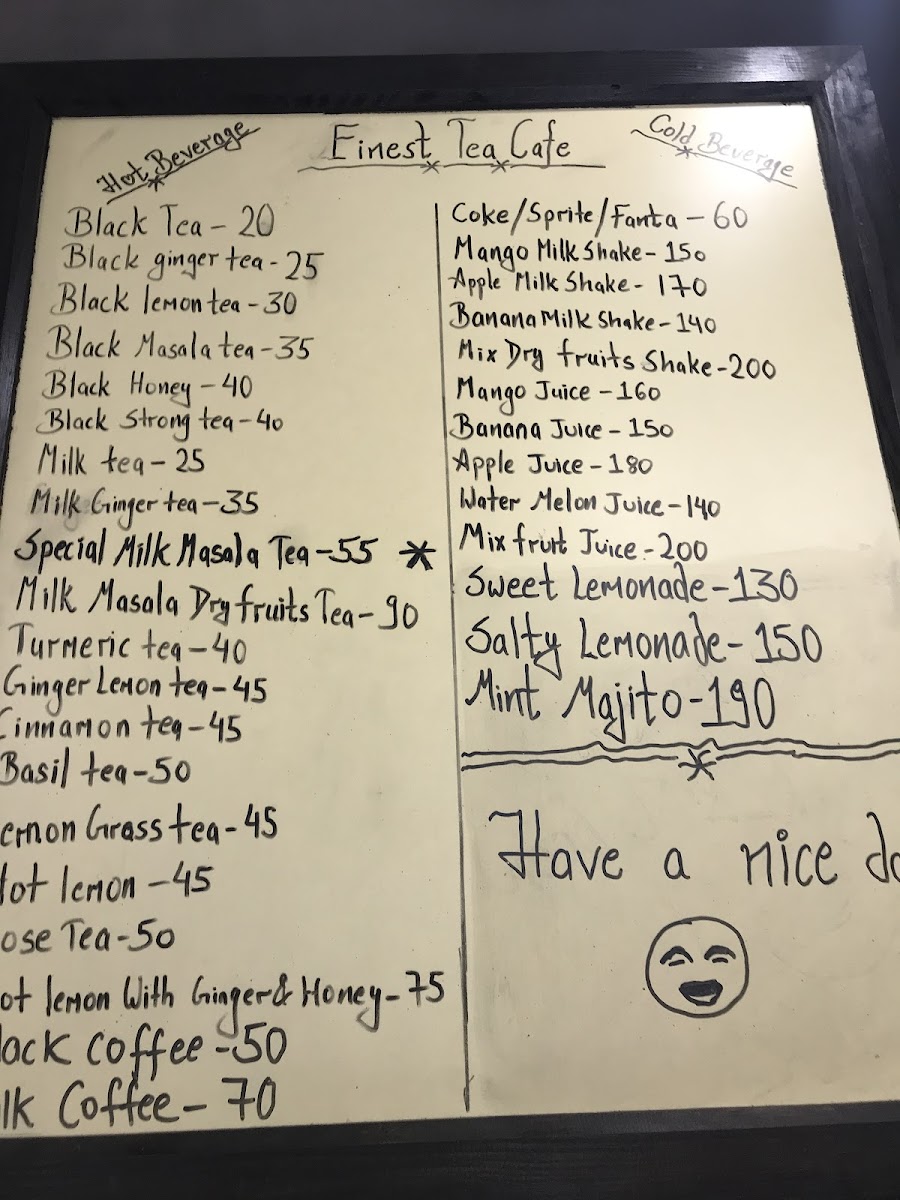 Finest Tea Cafe
Hot Beverage
Black Tea - 20
Black ginger tea - 25
Black lemon tea - 30
Black Masala tea - 35
Black Honey - 40
Black Strong tea - 40
Milk tea - 25
Milk Ginger tea - 35
Special Milk Masala Tea - 55 *
Milk Masala Dry fruits Tea - 90
Turmeric tea - 40
Ginger Lemon tea - 45
Cinnamon tea - 45
Basil tea - 50
emon Grass tea - 45
Hot lemon - 45
ose Tea - 50
ot lemon With Ginger & Honey - 75
lack coffee - 50
lk Coffee - 70
Cold Beverage
Coke/Sprite/Fanta - 60
Mango Milk Shake - 150
Apple Milk Shake - 170
Banana Milk Shake - 140
Mix Dry fruits Shake - 200
Mango Juice - 160
Banana Juice - 150
Apple Juice - 180
Water Melon Juice - 140
Mix fruit Juice - 200
Sweet Lemonade - 130
Salty Lemonade - 150
Mint Majito - 190
Have a nice da